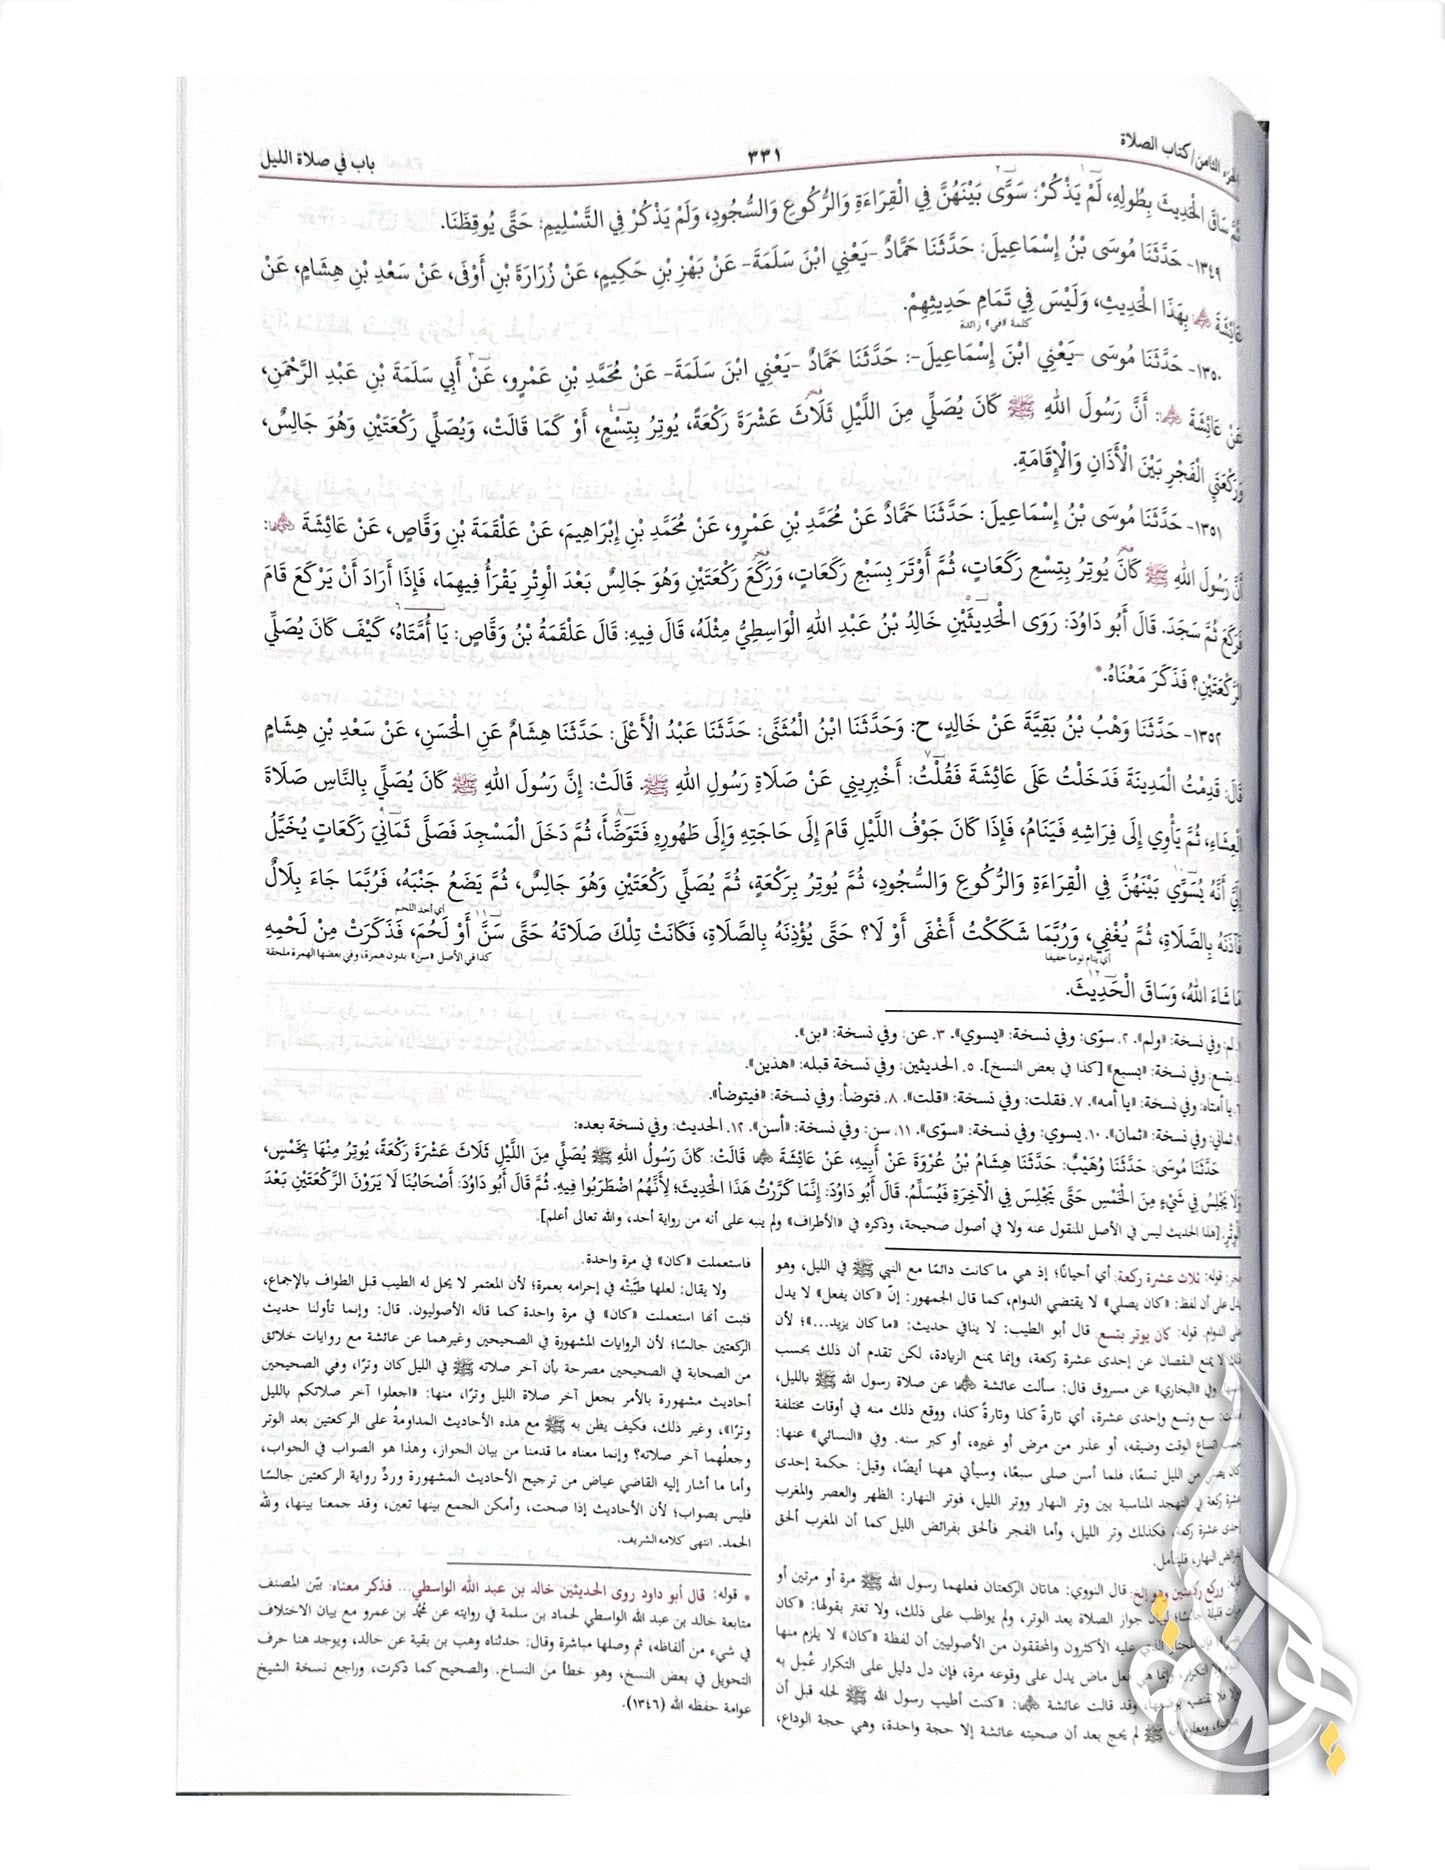 الجزء الثامن/كتاب الصلاة
٣٣١
باب في صلاة الليل
ثُمَّ سَاقَ الْحَدِيثَ بِطُولِهِ، لَمْ يَذْكُرْ: سَوَّى بَيْنَهُنَّ فِي الْقِرَاءَةِ وَالرُّكُوعِ وَالسُّجُودِ، وَلَمْ يَذْكُرْ فِي التَّسْلِيمِ: حَتَّى يُوقِظَنَا.
١٣٤٩- حَدَّثَنَا مُوسَى بْنُ إِسْمَاعِيلَ: حَدَّثَنَا حَمَّادٌ -يَعْنِي ابْنَ سَلَمَةَ- عَنْ بَهْزِ بْنِ حَكِيمٍ، عَنْ زُرَارَةَ بْنِ أَوْفَى، عَنْ سَعْدِ بْنِ هِشَامٍ، عَنْ
عَائِشَةَ ﵂ بِهَذَا الْحَدِيثِ، وَلَيْسَ فِي تَمَامِ حَدِيثِهِمْ.
كلمة «في» زائدة
١٣٥٠- حَدَّثَنَا مُوسَى -يَعْنِي ابْنَ إِسْمَاعِيلَ-: حَدَّثَنَا حَمَّادٌ -يَعْنِي ابْنَ سَلَمَةَ- عَنْ مُحَمَّدِ بْنِ عَمْرٍو، عَنْ أَبِي سَلَمَةَ بْنِ عَبْدِ الرَّحْمَنِ،
عَنْ عَائِشَةَ ﵂: أَنَّ رَسُولَ اللهِ ﷺ كَانَ يُصَلِّي مِنَ اللَّيْلِ ثَلَاثَ عَشْرَةَ رَكْعَةً، يُوتِرُ بِتِسْعٍ، أَوْ كَمَا قَالَتْ، وَيُصَلِّي رَكْعَتَيْنِ وَهُوَ جَالِسٌ،
وَرَكْعَتَيِ الْفَجْرِ بَيْنَ الْأَذَانِ وَالْإِقَامَةِ.
١٣٥١- حَدَّثَنَا مُوسَى بْنُ إِسْمَاعِيلَ: حَدَّثَنَا حَمَّادٌ عَنْ مُحَمَّدِ بْنِ عَمْرٍو، عَنْ مُحَمَّدِ بْنِ إِبْرَاهِيمَ، عَنْ عَلْقَمَةَ بْنِ وَقَّاصٍ، عَنْ عَائِشَةَ ﵂:
أَنَّ رَسُولَ اللهِ ﷺ كَانَ يُوتِرُ بِتِسْعِ رَكَعَاتٍ، ثُمَّ أَوْتَرَ بِسَبْعِ رَكَعَاتٍ، وَرَكَعَ رَكْعَتَيْنِ وَهُوَ جَالِسٌ بَعْدَ الْوِتْرِ يَقْرَأُ فِيهِمَا، فَإِذَا أَرَادَ أَنْ يَرْكَعَ قَامَ
فَرَكَعَ ثُمَّ سَجَدَ. قَالَ أَبُو دَاوُدَ: رَوَى الْحَدِيثَيْنِ خَالِدُ بْنُ عَبْدِ اللهِ الْوَاسِطِيُّ مِثْلَهُ، قَالَ فِيهِ: قَالَ عَلْقَمَةُ بْنُ وَقَّاصٍ: يَا أُمَّتَاهُ، كَيْفَ كَانَ يُصَلِّي
الرَّكْعَتَيْنِ؟ فَذَكَرَ مَعْنَاهُ.*
١٣٥٢- حَدَّثَنَا وَهْبُ بْنُ بَقِيَّةَ عَنْ خَالِدٍ، ح: وَحَدَّثَنَا ابْنُ الْمُثَنَّى: حَدَّثَنَا عَبْدُ الْأَعْلَى: حَدَّثَنَا هِشَامٌ عَنِ الْحَسَنِ، عَنْ سَعْدِ بْنِ هِشَامٍ
قَالَ: قَدِمْتُ الْمَدِينَةَ فَدَخَلْتُ عَلَى عَائِشَةَ فَقُلْتُ: أَخْبِرِينِي عَنْ صَلَاةِ رَسُولِ اللهِ ﷺ. قَالَتْ: إِنَّ رَسُولَ اللهِ ﷺ كَانَ يُصَلِّي بِالنَّاسِ صَلَاةَ
الْعِشَاءِ، ثُمَّ يَأْوِي إِلَى فِرَاشِهِ فَيَنَامُ، فَإِذَا كَانَ جَوْفُ اللَّيْلِ قَامَ إِلَى حَاجَتِهِ وَإِلَى طَهُورِهِ فَتَوَضَّأَ، ثُمَّ دَخَلَ الْمَسْجِدَ فَصَلَّى ثَمَانِيَ رَكَعَاتٍ يُخَيَّلُ
إِلَيَّ أَنَّهُ يُسَوِّي بَيْنَهُنَّ فِي الْقِرَاءَةِ وَالرُّكُوعِ وَالسُّجُودِ، ثُمَّ يُوتِرُ بِرَكْعَةٍ، ثُمَّ يُصَلِّي رَكْعَتَيْنِ وَهُوَ جَالِسٌ، ثُمَّ يَضَعُ جَنْبَهُ، فَرُبَّمَا جَاءَ بِلَالٌ
أي أخذ اللحم
فَآذَنَهُ بِالصَّلَاةِ، ثُمَّ يُغْفِي، وَرُبَّمَا شَكَكْتُ أَغْفَى أَوْ لَا؟ حَتَّى يُؤْذِنَهُ بِالصَّلَاةِ، فَكَانَتْ تِلْكَ صَلَاتَهُ حَتَّى سَنَّ أَوْ لَحُمَ، فَذَكَرَتْ مِنْ لَحْمِهِ
أي ينام نوما خفيفا
كذا في الأصل «سن» بدون همزة، وفي بعضها الهمزة ملحقة
مَا شَاءَ اللهُ، وَسَاقَ الْحَدِيثَ.
١. لم: وفي نسخة: «ولم». ٢. سوّى: وفي نسخة: «يسوي». ٣. عن: وفي نسخة: «بن».
٤. بتسع: وفي نسخة: «بسبع» [كذا في بعض النسخ]. ٥. الحديثين: وفي نسخة قبله: «هذين».
٦. يا أمتاه: وفي نسخة: «يا أمه». ٧. فقلت: وفي نسخة: «قلت». ٨. فتوضأ: وفي نسخة: «فيتوضأ».
٩. ثماني: وفي نسخة: «ثمان». ١٠. يسوي: وفي نسخة: «سوّى». ١١. سن: وفي نسخة: «أسن». ١٢. الحديث: وفي نسخة بعده:
حَدَّثَنَا مُوسَى: حَدَّثَنَا وُهَيْبٌ: حَدَّثَنَا هِشَامُ بْنُ عُرْوَةَ عَنْ أَبِيهِ، عَنْ عَائِشَةَ ﵂ قَالَتْ: كَانَ رَسُولُ اللهِ ﷺ يُصَلِّي مِنَ اللَّيْلِ ثَلَاثَ عَشْرَةَ رَكْعَةً، يُوتِرُ مِنْهَا بِخَمْسٍ،
وَلَا يَجْلِسُ فِي شَيْءٍ مِنَ الْخَمْسِ حَتَّى يَجْلِسَ فِي الْآخِرَةِ فَيُسَلِّمُ. قَالَ أَبُو دَاوُدَ: إِنَّمَا كَرَّرْتُ هَذَا الْحَدِيثَ؛ لِأَنَّهُمُ اضْطَرَبُوا فِيهِ. ثُمَّ قَالَ أَبُو دَاوُدَ: أَصْحَابُنَا لَا يَرَوْنَ الرَّكْعَتَيْنِ بَعْدَ
الْوِتْرِ. [هذا الحديث ليس في الأصل المنقول عنه ولا في أصول صحيحة، وذكره في «الأطراف» ولم ينبه على أنه من رواية أحد، والله تعالى أعلم].
قوله: ثلاث عشرة ركعة: أي أحيانًا؛ إذ هي ما كانت دائمًا مع النبي ﷺ في الليل، وهو
يدل على أن لفظ: «كان يصلي» لا يقتضي الدوام، كما قال الجمهور: إنّ «كان يفعل» لا يدل
على الدوام. قوله: كان يوتر بتسع: قال أبو الطيب: لا ينافي حديث: «ما كان يزيد...»؛ لأن
لا يمنع النقصان عن إحدى عشرة ركعة، وإنما يمنع الزيادة، لكن تقدم أن ذلك بحسب
وفي «البخاري» عن مسروق قال: سألت عائشة ﵂ عن صلاة رسول الله ﷺ بالليل،
فقالت: سبع وتسع وإحدى عشرة، أي تارةً كذا وتارةً كذا، ووقع ذلك منه في أوقات مختلفة
بحسب اتساع الوقت وضيقه، أو عذر من مرض أو غيره، أو كبر سنه. وفي «النسائي» عنها:
كان يصلي من الليل تسعًا، فلما أسن صلى سبعًا، وسيأتي ههنا أيضًا، وقيل: حكمة إحدى
عشرة ركعة في التهجد المناسبة بين وتر النهار ووتر الليل، فوتر النهار: الظهر والعصر والمغرب
إحدى عشرة ركعة، فكذلك وتر الليل، وأما الفجر فألحق بفرائض الليل كما أن المغرب ألحق
بفرائض النهار، فليتأمل.
قوله: وركع ركعتين وهو إلخ: قال النووي: هاتان الركعتان فعلهما رسول الله ﷺ مرة أو مرتين أو
مرات قليلة جالسًا؛ لبيان جواز الصلاة بعد الوتر، ولم يواظب على ذلك، ولا تغتر بقولها: «كان
فإن المختار الذي عليه الأكثرون والمحققون من الأصوليين أن لفظة «كان» لا يلزم منها
ولا التكرار، وإنما هي فعل ماض يدل على وقوعه مرة، فإن دل دليل على التكرار عُمِل به
وإلا فلا تقتضيه بوضعها، وقد قالت عائشة ﵂: «كنت أطيب رسول الله ﷺ لحله قبل أن
يطوف»، ومعلوم أنه ﷺ لم يحج بعد أن صحبته عائشة إلا حجة واحدة، وهي حجة الوداع،
فاستعملت «كان» في مرة واحدة.
ولا يقال: لعلها طيَّبَتْه في إحرامه بعمرة؛ لأن المعتمر لا يحل له الطيب قبل الطواف بالإجماع،
فثبت أنها استعملت «كان» في مرة واحدة كما قاله الأصوليون. قال: وإنما تأولنا حديث
الركعتين جالسًا؛ لأن الروايات المشهورة في الصحيحين وغيرهما عن عائشة مع روايات خلائق
من الصحابة في الصحيحين مصرحة بأن آخر صلاته ﷺ في الليل كان وترًا، وفي الصحيحين
أحاديث مشهورة بالأمر بجعل آخر صلاة الليل وترًا، منها: «اجعلوا آخر صلاتكم بالليل
وترًا»، وغير ذلك، فكيف يظن به ﷺ مع هذه الأحاديث المداومةُ على الركعتين بعد الوتر
وجعلُهما آخر صلاته؟ وإنما معناه ما قدمنا من بيان الجواز، وهذا هو الصواب في الجواب،
وأما ما أشار إليه القاضي عياض من ترجيح الأحاديث المشهورة وردِّ رواية الركعتين جالسًا
فليس بصواب؛ لأن الأحاديث إذا صحت، وأمكن الجمع بينها تعين، وقد جمعنا بينها، ولله
الحمد. انتهى كلامه الشريف.
* قوله: قال أبو داود روى الحديثين خالد بن عبد الله الواسطي... فذكر معناه: بيّن المصنف
متابعة خالد بن عبد الله الواسطي لحماد بن سلمة في روايته عن محمد بن عمرو مع بيان الاختلاف
في شيء من ألفاظه، ثم وصلها مباشرة وقال: حدثناه وهب بن بقية عن خالد، ويوجد هنا حرف
التحويل في بعض النسخ، وهو خطأ من النساخ. والصحيح كما ذكرت، وراجع نسخة الشيخ
عوامة حفظه الله (١٣٤٦).